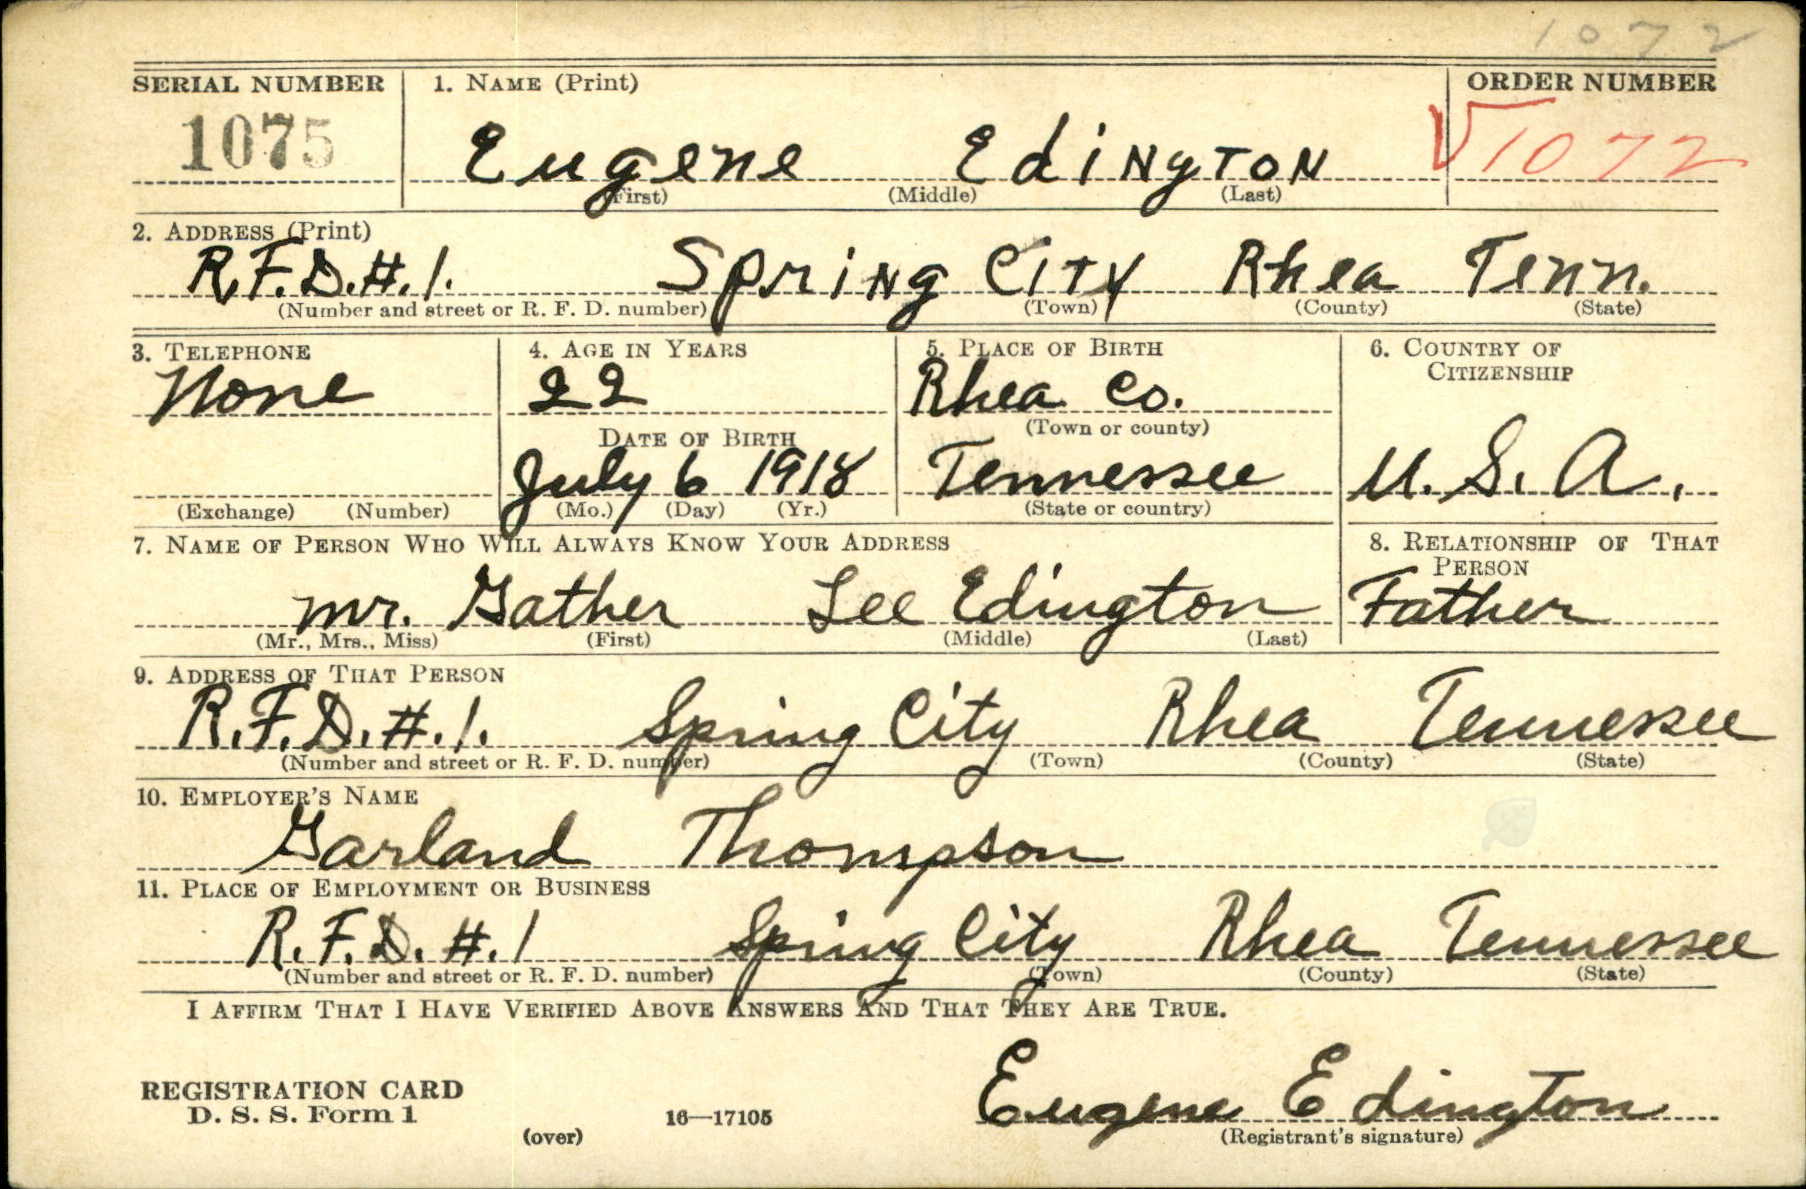 1072
SERIAL NUMBER 1. NAME (Print) ORDER NUMBER
1075 Eugene Edington √1072
(First) (Middle) (Last)
2. ADDRESS (Print)
R.F.D.#.1. Spring City Rhea Tenn.
(Number and street or R. F. D. number) (Town) (County) (State)
3. TELEPHONE 4. AGE IN YEARS 5. PLACE OF BIRTH 6. COUNTRY OF
CITIZENSHIP
None 22 Rhea Co.
(Town or county)
DATE OF BIRTH
July 6 1918 Tennessee U.S.A.
(Exchange) (Number) (Mo.) (Day) (Yr.) (State or country)
7. NAME OF PERSON WHO WILL ALWAYS KNOW YOUR ADDRESS 8. RELATIONSHIP OF THAT
PERSON
mr. Gather Lee Edington Father
(Mr., Mrs., Miss) (First) (Middle) (Last)
9. ADDRESS OF THAT PERSON
R.F.D.#.1. Spring City Rhea Tennessee
(Number and street or R. F. D. number) (Town) (County) (State)
10. EMPLOYER'S NAME
Garland Thompson
11. PLACE OF EMPLOYMENT OR BUSINESS
R.F.D.#.1 Spring City Rhea Tennessee
(Number and street or R. F. D. number) (Town) (County) (State)
I AFFIRM THAT I HAVE VERIFIED ABOVE ANSWERS AND THAT THEY ARE TRUE.
REGISTRATION CARD
D. S. S. Form 1 16—17105 Eugene Edington
(over) (Registrant's signature)